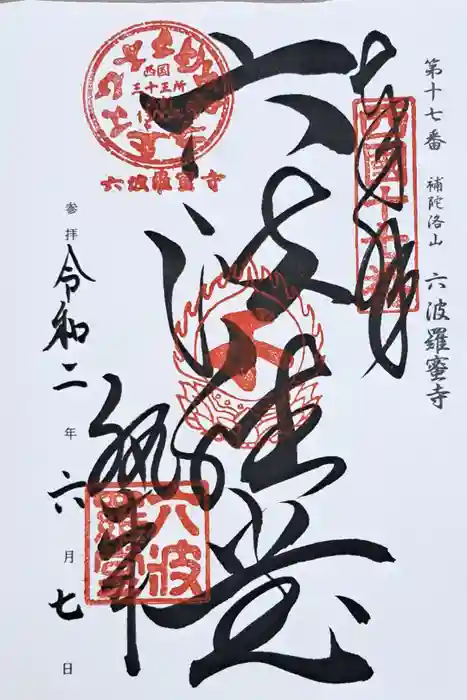 第十七番 補陀洛山 六波羅蜜寺
奉拝
西国十七番
六波羅堂
西国
三十三所
六波羅蜜寺
執事
六波羅蜜
参拝 令和二年六月七日